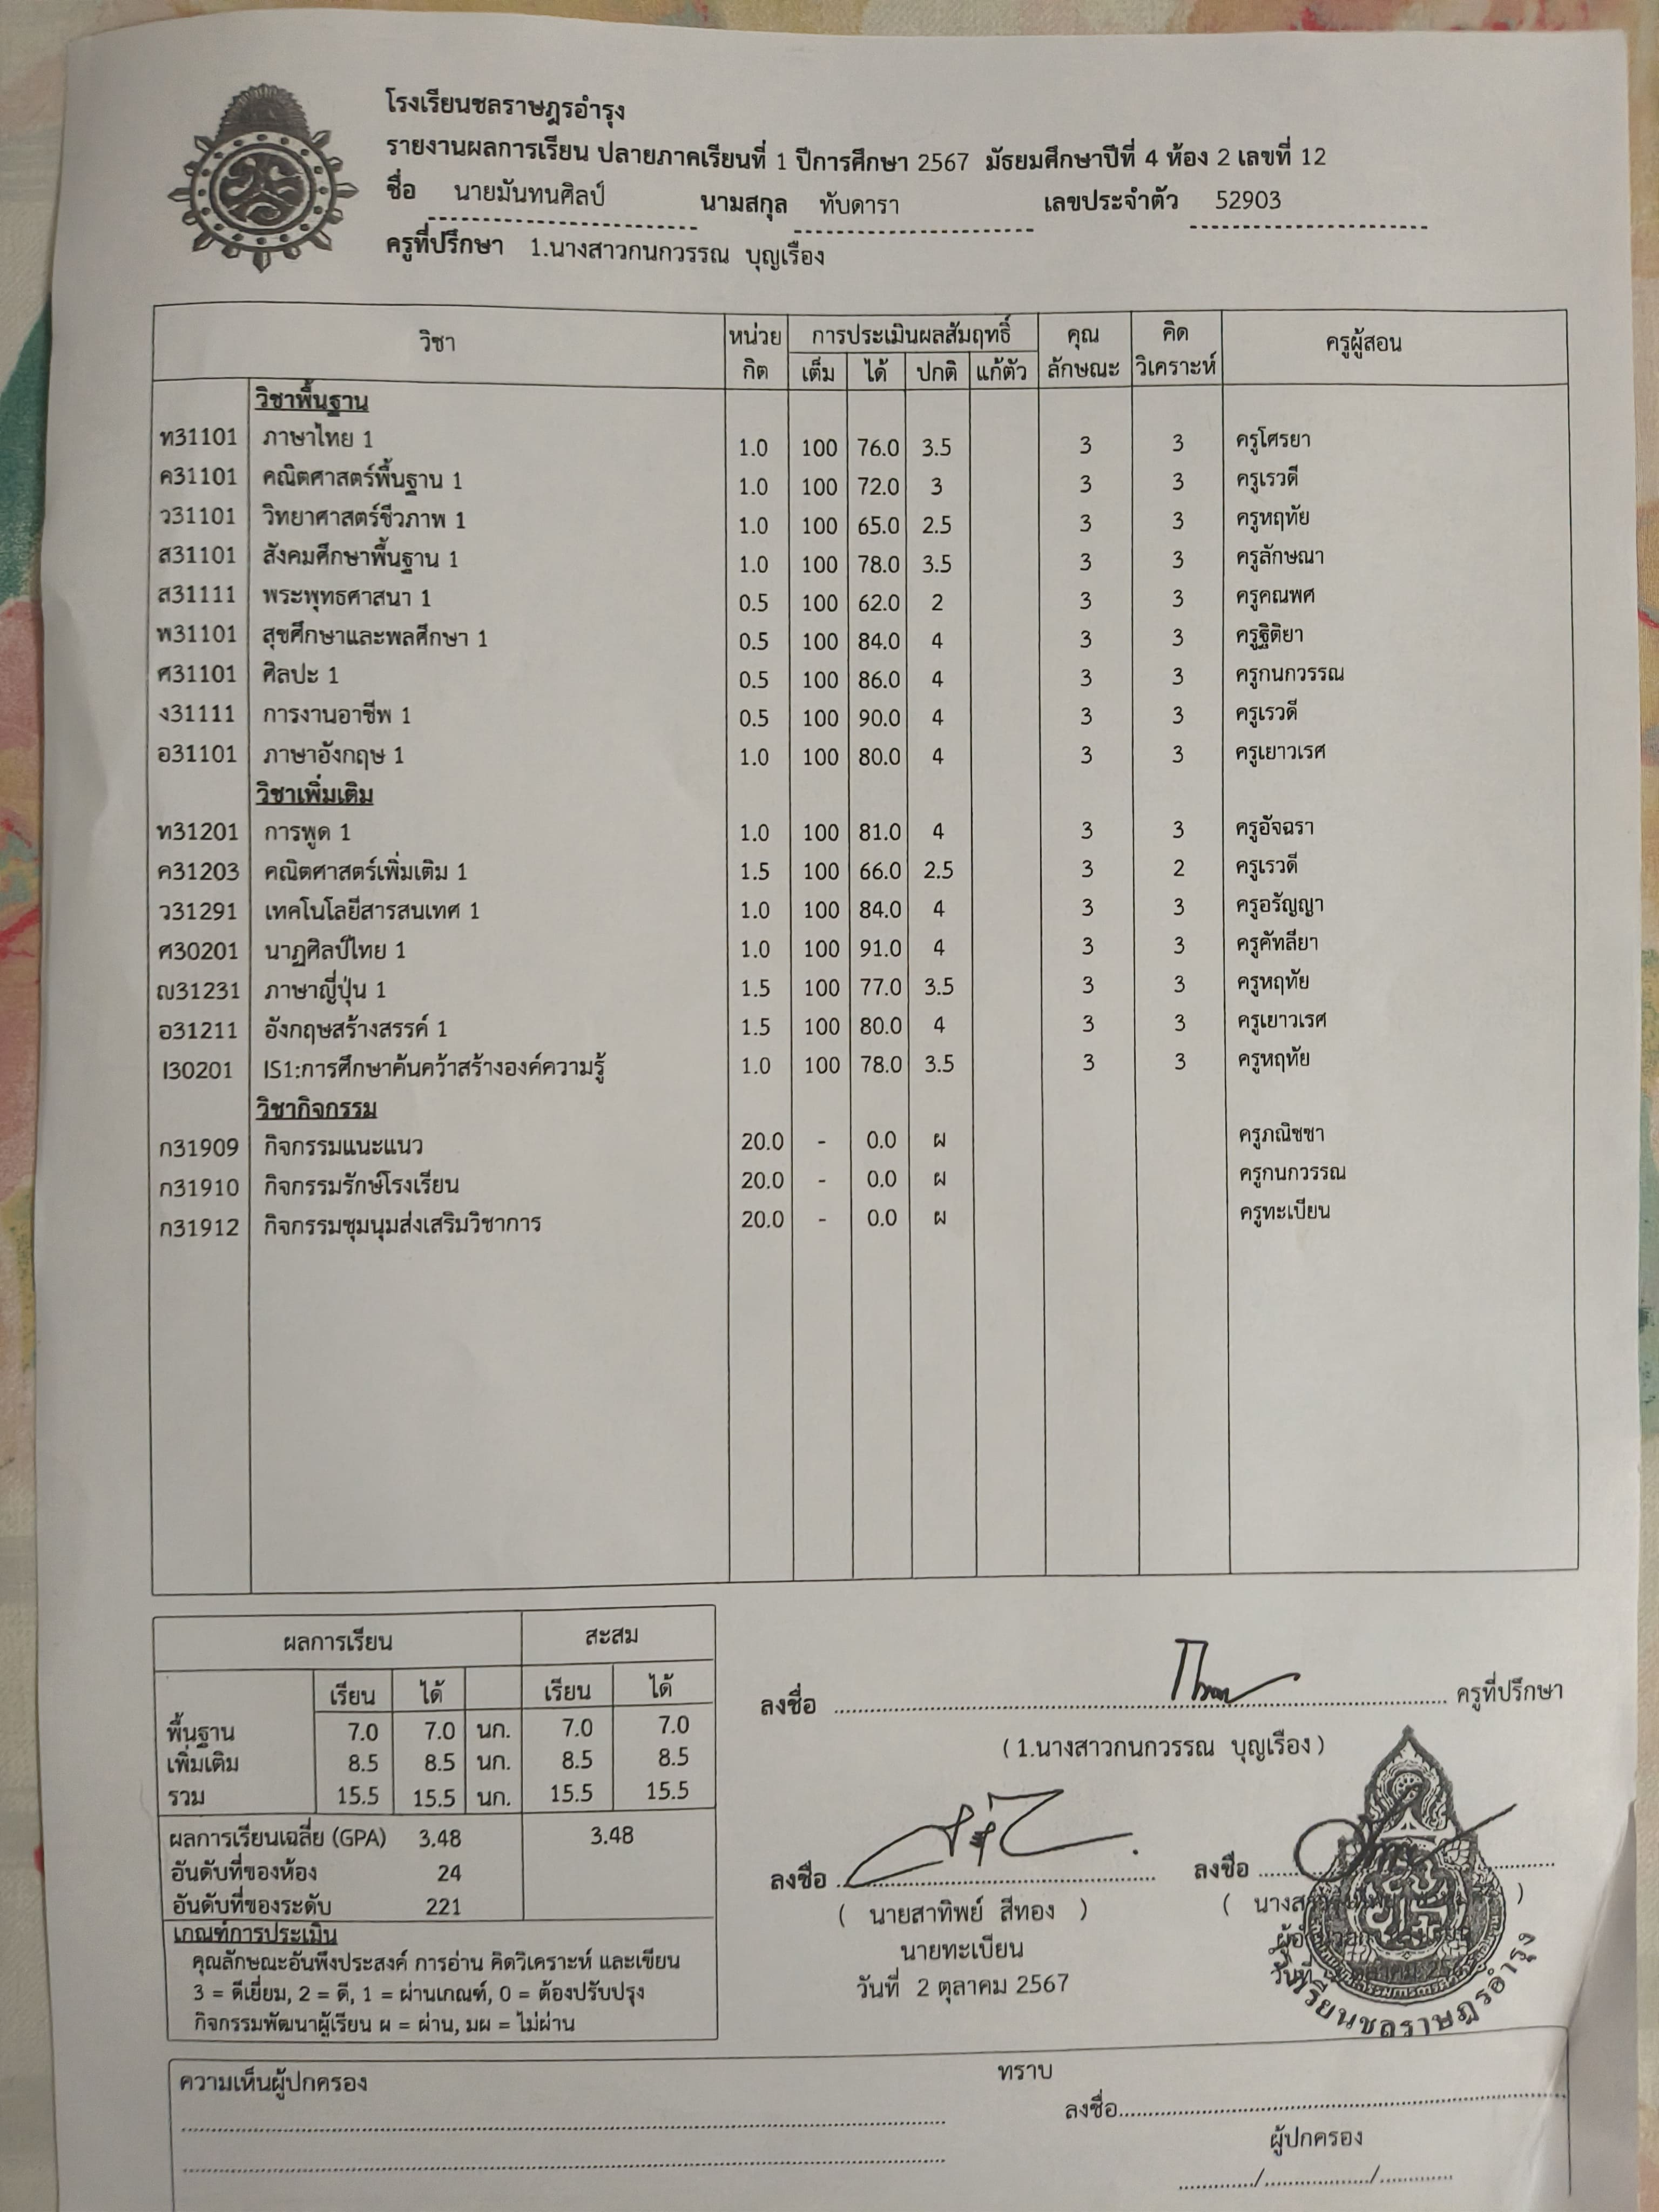 โรงเรียนชลราษฎรอำรุง
รายงานผลการเรียน ปลายภาคเรียนที่ 1 ปีการศึกษา 2567 มัธยมศึกษาปีที่ 4 ห้อง 2 เลขที่ 12
ชื่อ นายมันทนศิลป์ นามสกุล ทับดารา เลขประจำตัว 52903
ครูที่ปรึกษา 1.นางสาวกนกวรรณ บุญเรือง
วิชา หน่วยกิต การประเมินผลสัมฤทธิ์ คุณลักษณะ คิดวิเคราะห์ ครูผู้สอน
เต็ม ได้ ปกติ แก้ตัว
วิชาพื้นฐาน
ท31101 ภาษาไทย 1 1.0 100 76.0 3.5 3 3 ครูโศรยา
ค31101 คณิตศาสตร์พื้นฐาน 1 1.0 100 72.0 3 3 3 ครูเรวดี
ว31101 วิทยาศาสตร์ชีวภาพ 1 1.0 100 65.0 2.5 3 3 ครูหฤทัย
ส31101 สังคมศึกษาพื้นฐาน 1 1.0 100 78.0 3.5 3 3 ครูลักษณา
ส31111 พระพุทธศาสนา 1 0.5 100 62.0 2 3 3 ครูคณพศ
พ31101 สุขศึกษาและพลศึกษา 1 0.5 100 84.0 4 3 3 ครูฐิติยา
ศ31101 ศิลปะ 1 0.5 100 86.0 4 3 3 ครูกนกวรรณ
ง31111 การงานอาชีพ 1 0.5 100 90.0 4 3 3 ครูเรวดี
อ31101 ภาษาอังกฤษ 1 1.0 100 80.0 4 3 3 ครูเยาวเรศ
วิชาเพิ่มเติม
ท31201 การพูด 1 1.0 100 81.0 4 3 3 ครูอัจฉรา
ค31203 คณิตศาสตร์เพิ่มเติม 1 1.5 100 66.0 2.5 3 2 ครูเรวดี
ว31291 เทคโนโลยีสารสนเทศ 1 1.0 100 84.0 4 3 3 ครูอรัญญา
ศ30201 นาฏศิลป์ไทย 1 1.0 100 91.0 4 3 3 ครูคัทลียา
ญ31231 ภาษาญี่ปุ่น 1 1.5 100 77.0 3.5 3 3 ครูหฤทัย
อ31211 อังกฤษสร้างสรรค์ 1 1.5 100 80.0 4 3 3 ครูเยาวเรศ
I30201 IS1:การศึกษาค้นคว้าสร้างองค์ความรู้ 1.0 100 78.0 3.5 3 3 ครูหฤทัย
วิชากิจกรรม
ก31909 กิจกรรมแนะแนว 20.0 - 0.0 ผ ครูภณิชชา
ก31910 กิจกรรมรักษ์โรงเรียน 20.0 - 0.0 ผ ครูกนกวรรณ
ก31912 กิจกรรมชุมนุมส่งเสริมวิชาการ 20.0 - 0.0 ผ ครูทะเบียน
ผลการเรียน สะสม
เรียน ได้ เรียน ได้
พื้นฐาน 7.0 7.0 นก. 7.0 7.0
เพิ่มเติม 8.5 8.5 นก. 8.5 8.5
รวม 15.5 15.5 นก. 15.5 15.5
ผลการเรียนเฉลี่ย (GPA) 3.48 3.48
อันดับที่ของห้อง 24
อันดับที่ของระดับ 221
เกณฑ์การประเมิน
คุณลักษณะอันพึงประสงค์ การอ่าน คิดวิเคราะห์ และเขียน
3 = ดีเยี่ยม, 2 = ดี, 1 = ผ่านเกณฑ์, 0 = ต้องปรับปรุง
กิจกรรมพัฒนาผู้เรียน ผ = ผ่าน, มผ = ไม่ผ่าน
ลงชื่อ ครูที่ปรึกษา
(1.นางสาวกนกวรรณ บุญเรือง)
ลงชื่อ
( นายสาทิพย์ สีทอง )
นายทะเบียน
วันที่ 2 ตุลาคม 2567
ลงชื่อ
วันที่
โรงเรียนชลราษฎรอำรุง
ความเห็นผู้ปกครอง
ทราบ
ลงชื่อ
ผู้ปกครอง